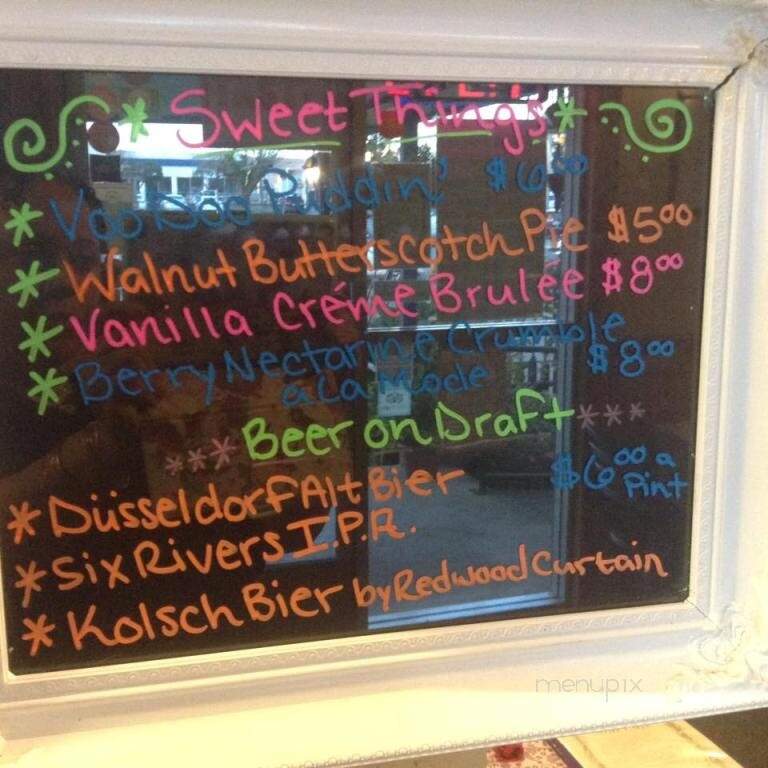 * Sweet Things *
* VooDoo Puddin' $6.00
* Walnut Butterscotch Pie $5.00
* Vanilla Créme Brulee $8.00
* Berry Nectarine Crumble
a la Mode $8.00
*** Beer on Draft ***
* Düsseldorf Alt Bier $6.00 a Pint
* Six Rivers I.P.A.
* Kolsch Bier by Redwood Curtain
menupix